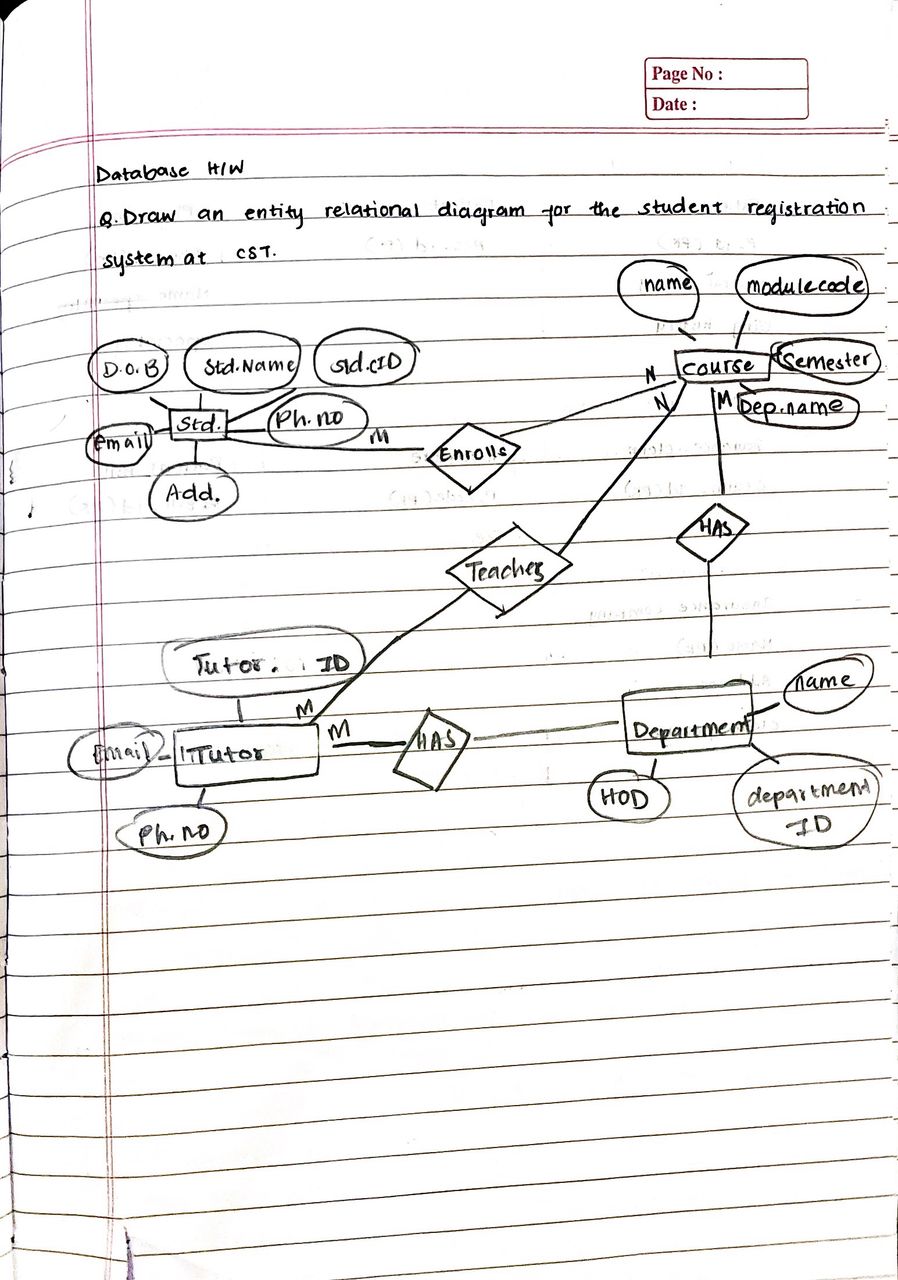 Page No :
Date :
Database H/W
Q. Draw an entity relational diagram for the student registration
system at CST.
name modulecode
D.O.B Std.Name Std.CID
Course Semester
N
N M Dep.name
Std. Ph.no
Email M Enrolls
Add.
HAS
Teaches
Tutor. ID
name
M
M
Email Tutor HAS Department
HOD department
ID
Ph.no